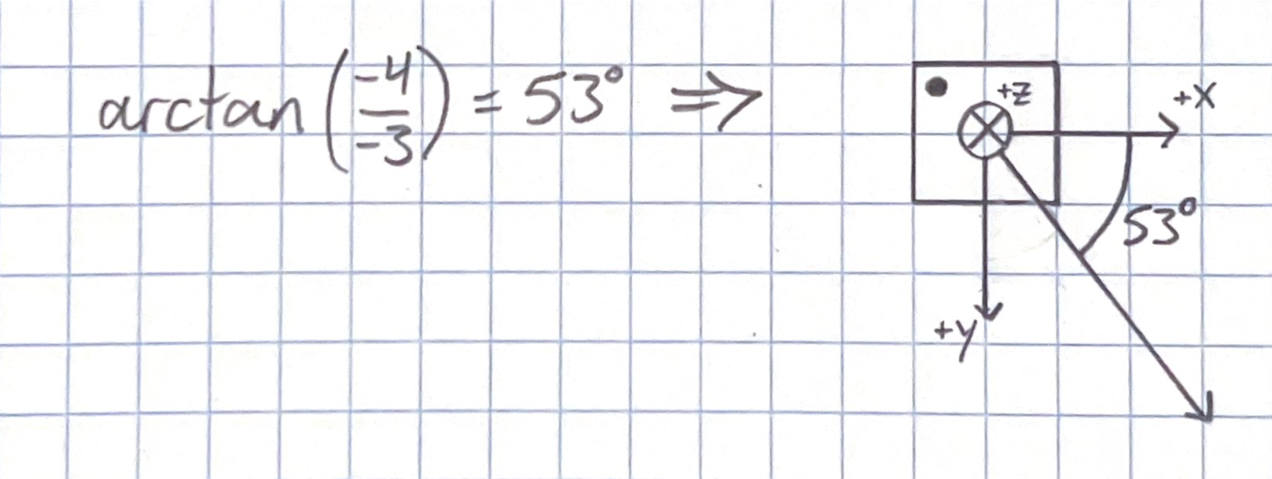 arctan(-4/-3) = 53° ⇒
+Z
+X
53°
+y